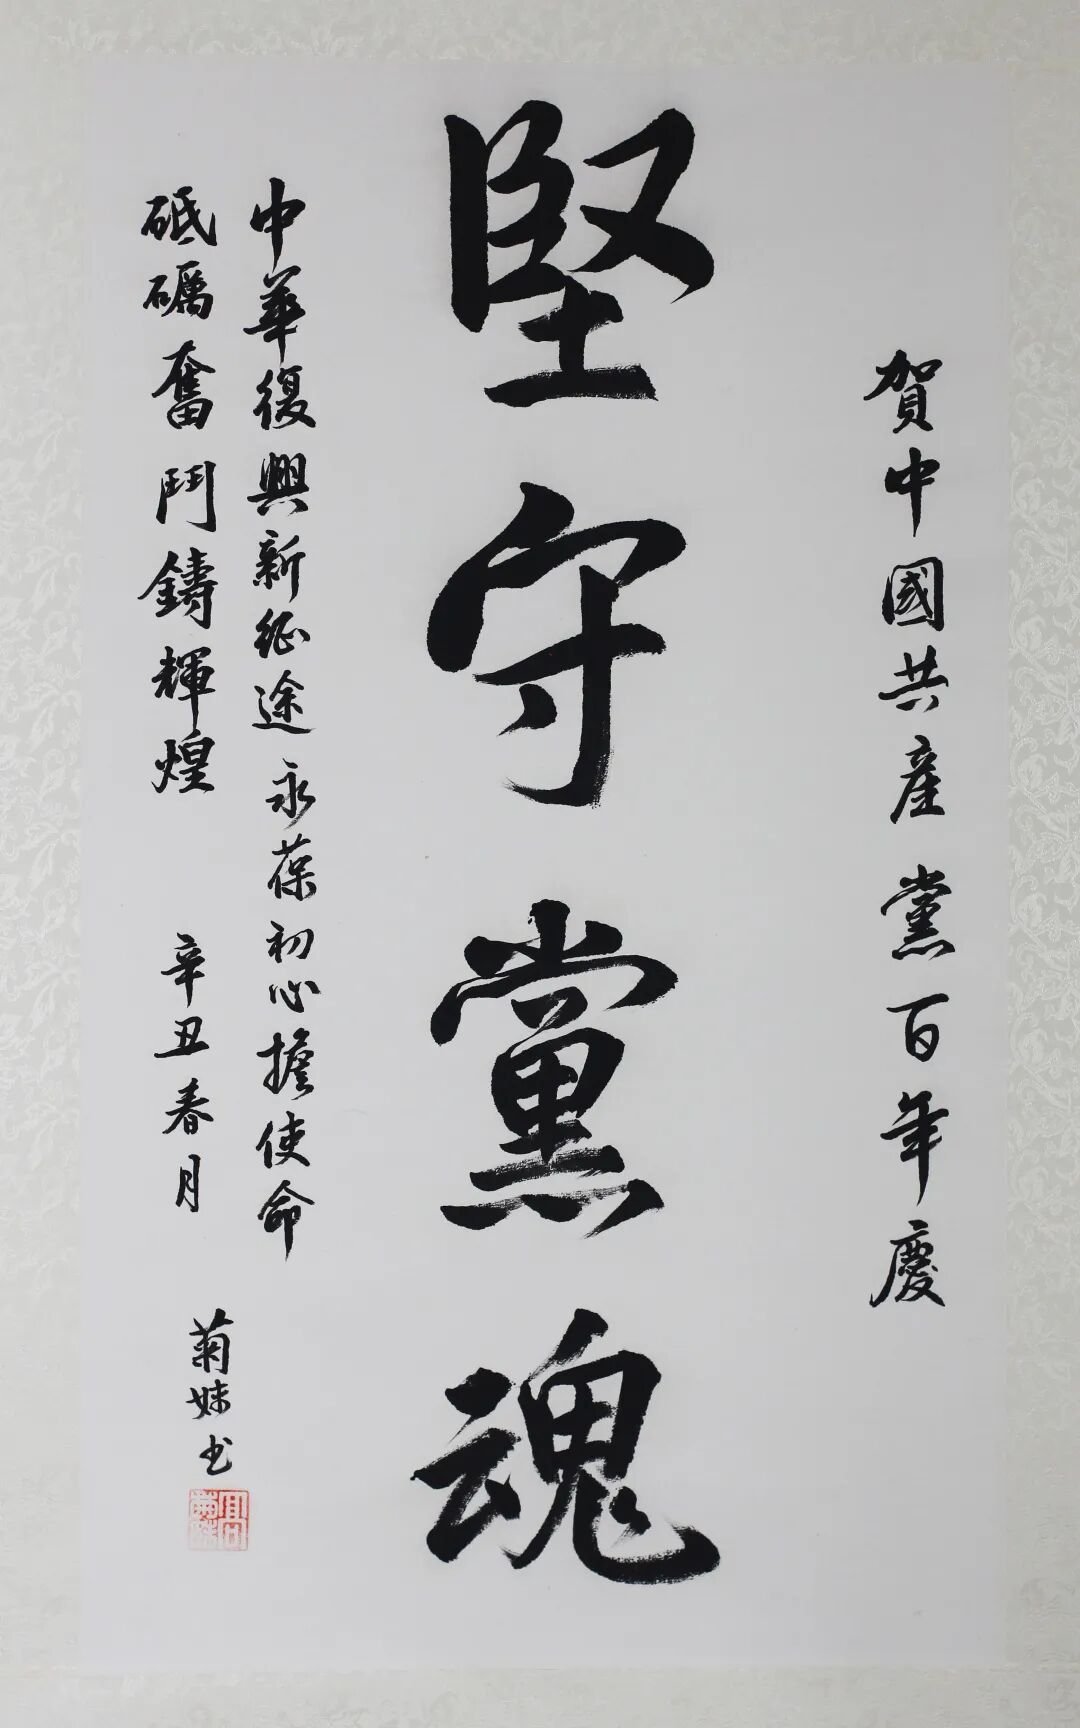 賀中國共産黨百年慶
堅守黨魂
中華復興新征途永葆初心擔使命
砥礪奮鬥鑄輝煌 辛丑春月
菊妹书